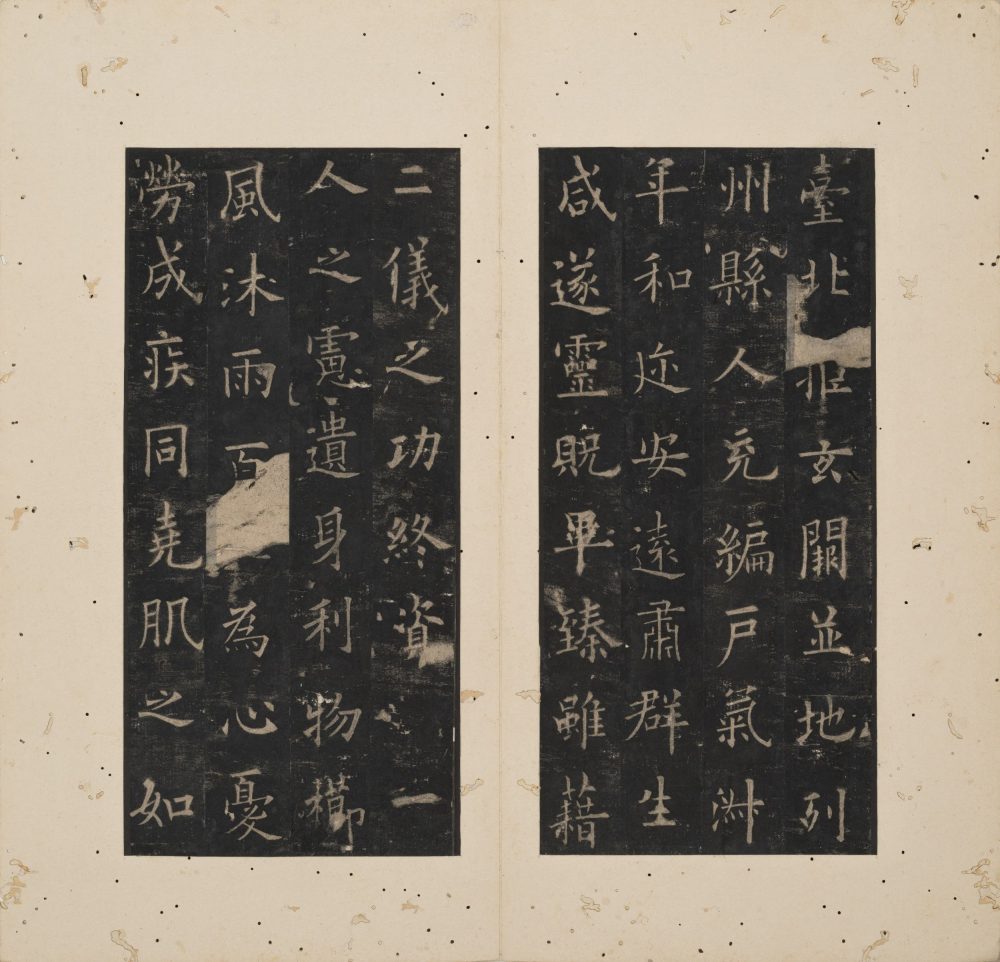 臺北距玄闕並地列
州縣人充編戶氣淑
年和迩安遠肅群生
咸遂靈貺畢臻雖藉
二儀之功終資一
人之慮遺身利物櫛
風沐雨百為心憂
勞成疾同堯肌之如